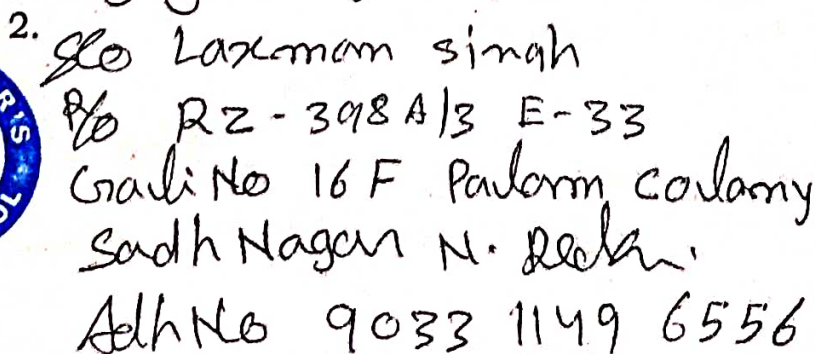 2.
S/o Laxmam singh
R/o RZ-398 A/3 E-33
Gali No 16 F Palam coulamy
Sadh Nagar N. Delhi.
Adh No 9033 1149 6556
R'S